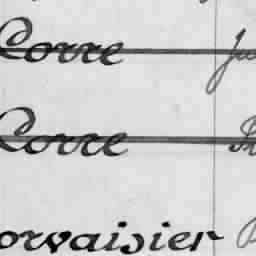 Corre
Corre
orvaisier